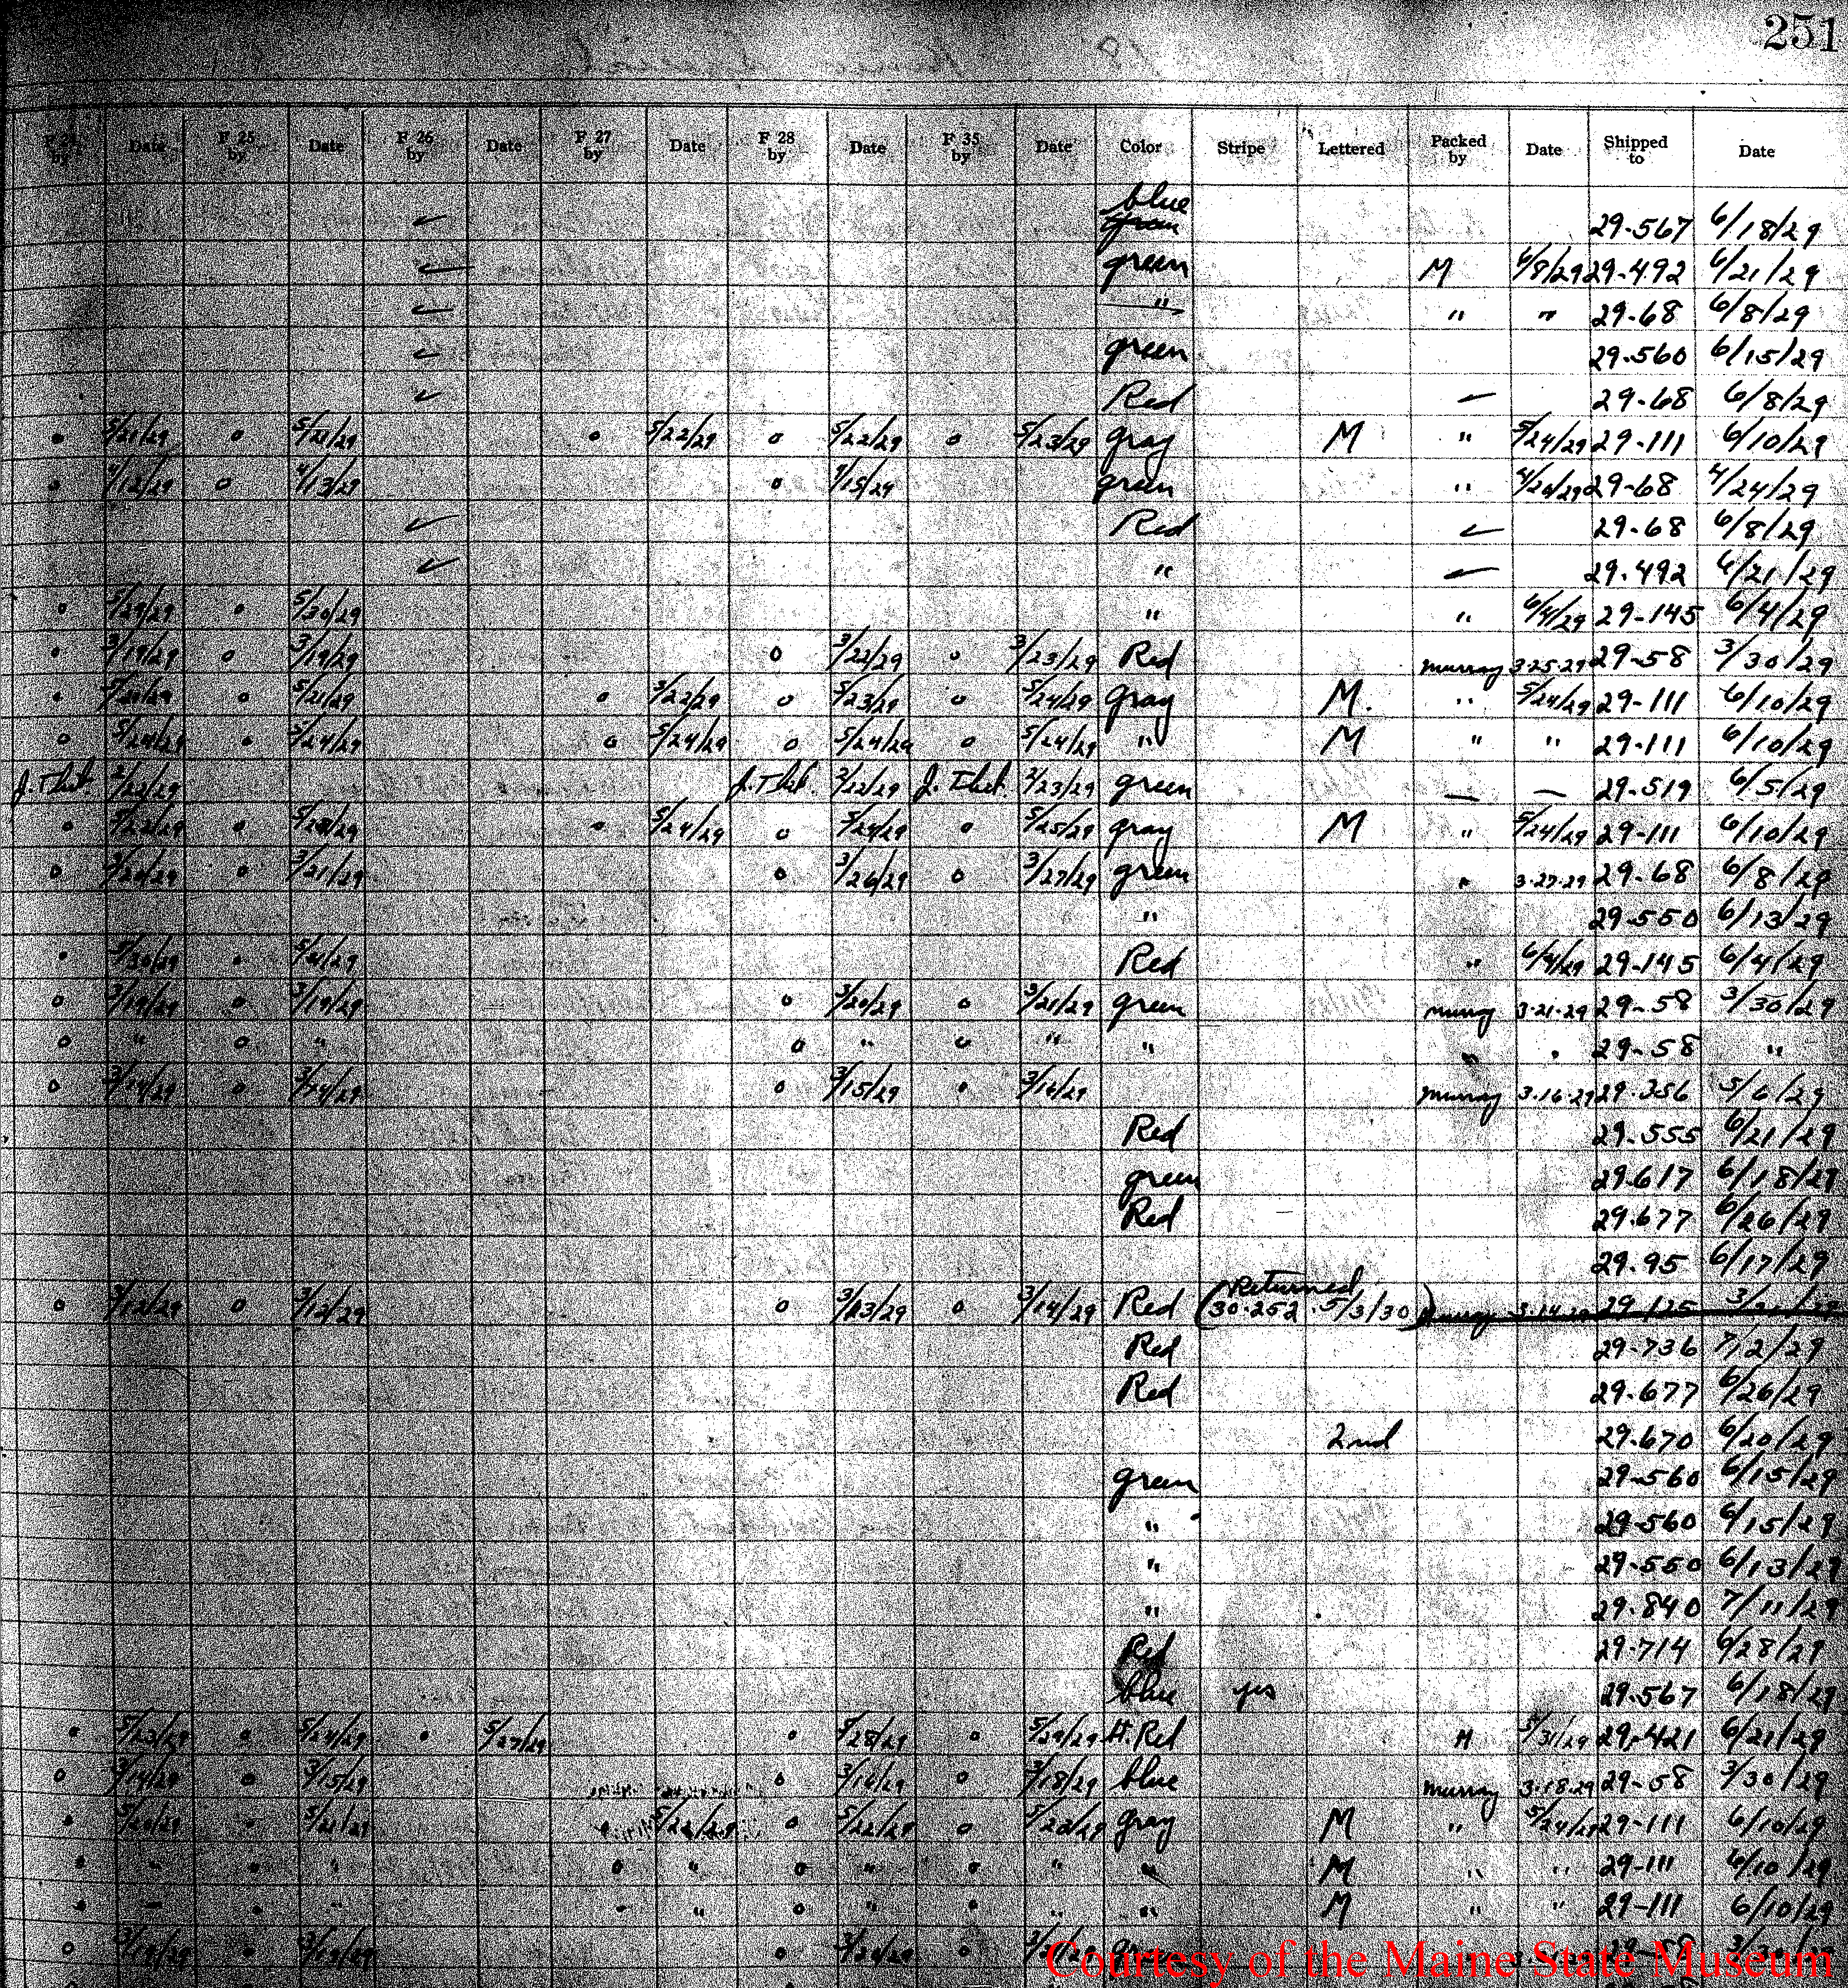 251
F 24 by Date F 25 by Date F 26 by Date F 27 by Date F 28 by Date F 35 by Date Color Stripe Lettered Packed by Date Shipped to Date
✓ blue green 29-567 6/18/29
✓ green M 6/8/29 29-492 6/21/29
✓ " " " 29-68 6/8/29
✓ green 29-560 6/15/29
✓ Red ✓ 29-68 6/8/29
o 5/21/29 o 5/21/29 o 5/22/29 o 5/22/29 o 5/23/29 gray M " 5/24/29 29-111 6/10/29
o 4/12/29 o 4/13/29 o 4/15/29 green " 4/20/29 29-68 4/24/29
✓ Red ✓ 29-68 6/8/29
✓ " ✓ 29-492 6/21/29
o 5/29/29 o 5/30/29 " " 6/4/29 29-145 6/4/29
o 3/19/29 o 3/19/29 o 3/22/29 o 3/23/29 Red Murray 3-25-29 29-58 3/30/29
o 5/20/29 o 5/21/29 o 5/22/29 o 5/23/29 o 5/24/29 gray M. " 5/24/29 29-111 6/10/29
o 5/24/29 o 5/24/29 o 5/24/29 o 5/24/29 o 5/24/29 " M " " 29-111 6/10/29
2/22/29 2/22/29 2/23/29 green — — 29-519 6/5/29
o 5/22/29 o o 5/24/29 o 5/24/29 o 5/25/29 gray M " 5/24/29 29-111 6/10/29
o 3/20/29 o 3/21/29 o 3/26/29 o 3/27/29 green " 3-27-29 29-68 6/8/29
" 29-550 6/13/29
o 5/30/29 o 5/31/29 Red " 6/4/29 29-145 6/4/29
o 3/19/29 o 3/19/29 o 3/20/29 o 3/21/29 green Murray 3-21-29 29-58 3/30/29
o " o " o " o " " " " 29-58 "
o 3/14/29 o 3/14/29 o 3/15/29 o 3/16/29 Murray 3-16-29 29-356 5/6/29
Red 29-555 6/21/29
green 29-617 6/18/29
Red 29-677 6/26/29
29-95 6/17/29
o 3/12/29 o 3/12/29 o 3/13/29 o 3/14/29 Red (Returned 30-252 5/3/30) Murray 3-14-29 29-125
Red 29-736 7/2/29
Red 29-677 6/26/29
2nd 29-670 6/20/29
green 29-560 6/15/29
" 29-560 6/15/29
" 29-550 6/13/29
" 29-840 7/11/29
Red 29-714 6/28/29
blue yes 29-567 6/18/29
o 5/23/29 o 5/24/29 o 5/27/29 o 5/28/29 o 5/29/29 lt. Red M 5/31/29 29-421 6/21/29
o 3/14/29 o 3/15/29 o 3/16/29 o 3/18/29 blue Murray 3-18-29 29-58 3/30/29
o 5/20/29 o 5/21/29 5/22/29 o 5/22/29 o gray M " 5/24/29 29-111 6/10/29
o " o " o " o " o " " M " " 29-111 6/10/29
o " o " " o " o " " M " " 29-111 6/10/29
o o o o 29-58
Courtesy of the Maine State Museum